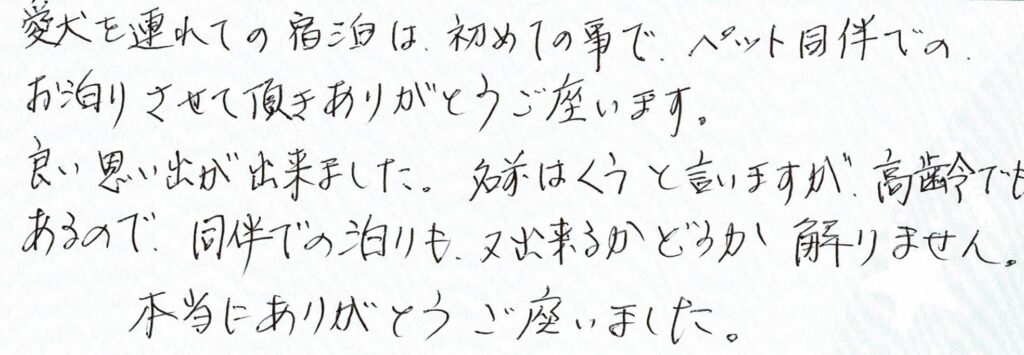 愛犬を連れての宿泊は、初めての事で、ペット同伴での、
お泊りさせて頂きありがとうご座います。
良い思い出が出来ました。名前はくうと言いますが、高齢でも
あるので、同伴での泊りも、又出来るかどうか解りません。
本当にありがとうご座いました。